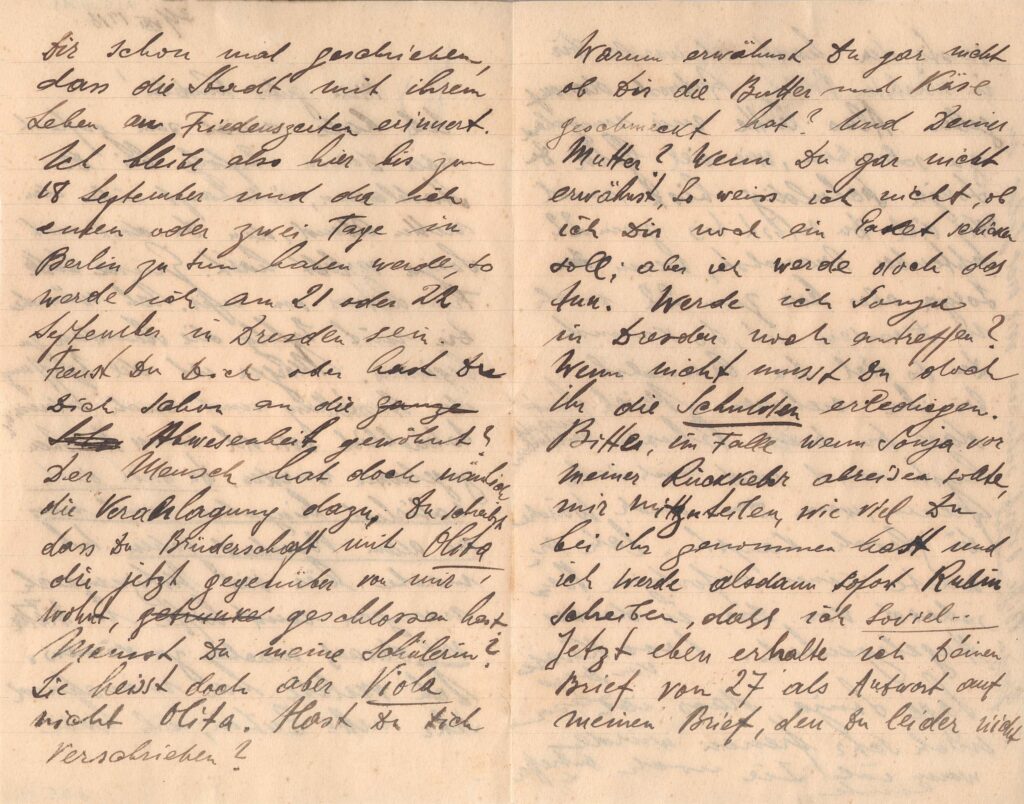 Dir schon mal geschrieben,
dass die Stadt mit ihrem
Leben an Friedenszeiten erinnert.
Ich bleibe also hier bis zum
18 September und da ich
einen oder zwei Tage in
Berlin zu tun haben werde, so
werde ich am 21 oder 22
September in Dresden sein.
Freust Du Dich oder hast Du
Dich schon an die ganze
Abwesenheit gewöhnt?
Der Mensch hat doch nämlich
die Veranlagung dazu. Du schreibst
dass Du Brüderschaft mit Olita
die jetzt gegenüber von mir
wohnt, getrunken geschlossen hast
Meinst Du meine Schülerin?
Sie heisst doch aber Viola
nicht Olita. Hast Du Dich
verschrieben?
Warum erwähnst Du gar nicht
ob Dir die Butter und Käse
geschmeckt hat? Und Deiner
Mutter? Wenn Du gar nicht
erwähnst, so weiss ich nicht, ob
ich Dir noch ein Paket schicken
soll; aber ich werde doch das
tun. Werde ich Sonja
in Dresden noch antreffen?
Wenn nicht musst Du doch
ihr die Schulden erledigen.
Bitte, im Falle wenn Sonja vor
meiner Rückkehr abreisen sollte,
mir mitzuteilen, wie viel Du
bei ihr genommen hast und
ich werde alsdann sofort Rubin
schreiben, dass ich soviel...
Jetzt eben erhalte ich Deinen
Brief von 27 als Antwort auf
meinen Brief, den Du leider nicht